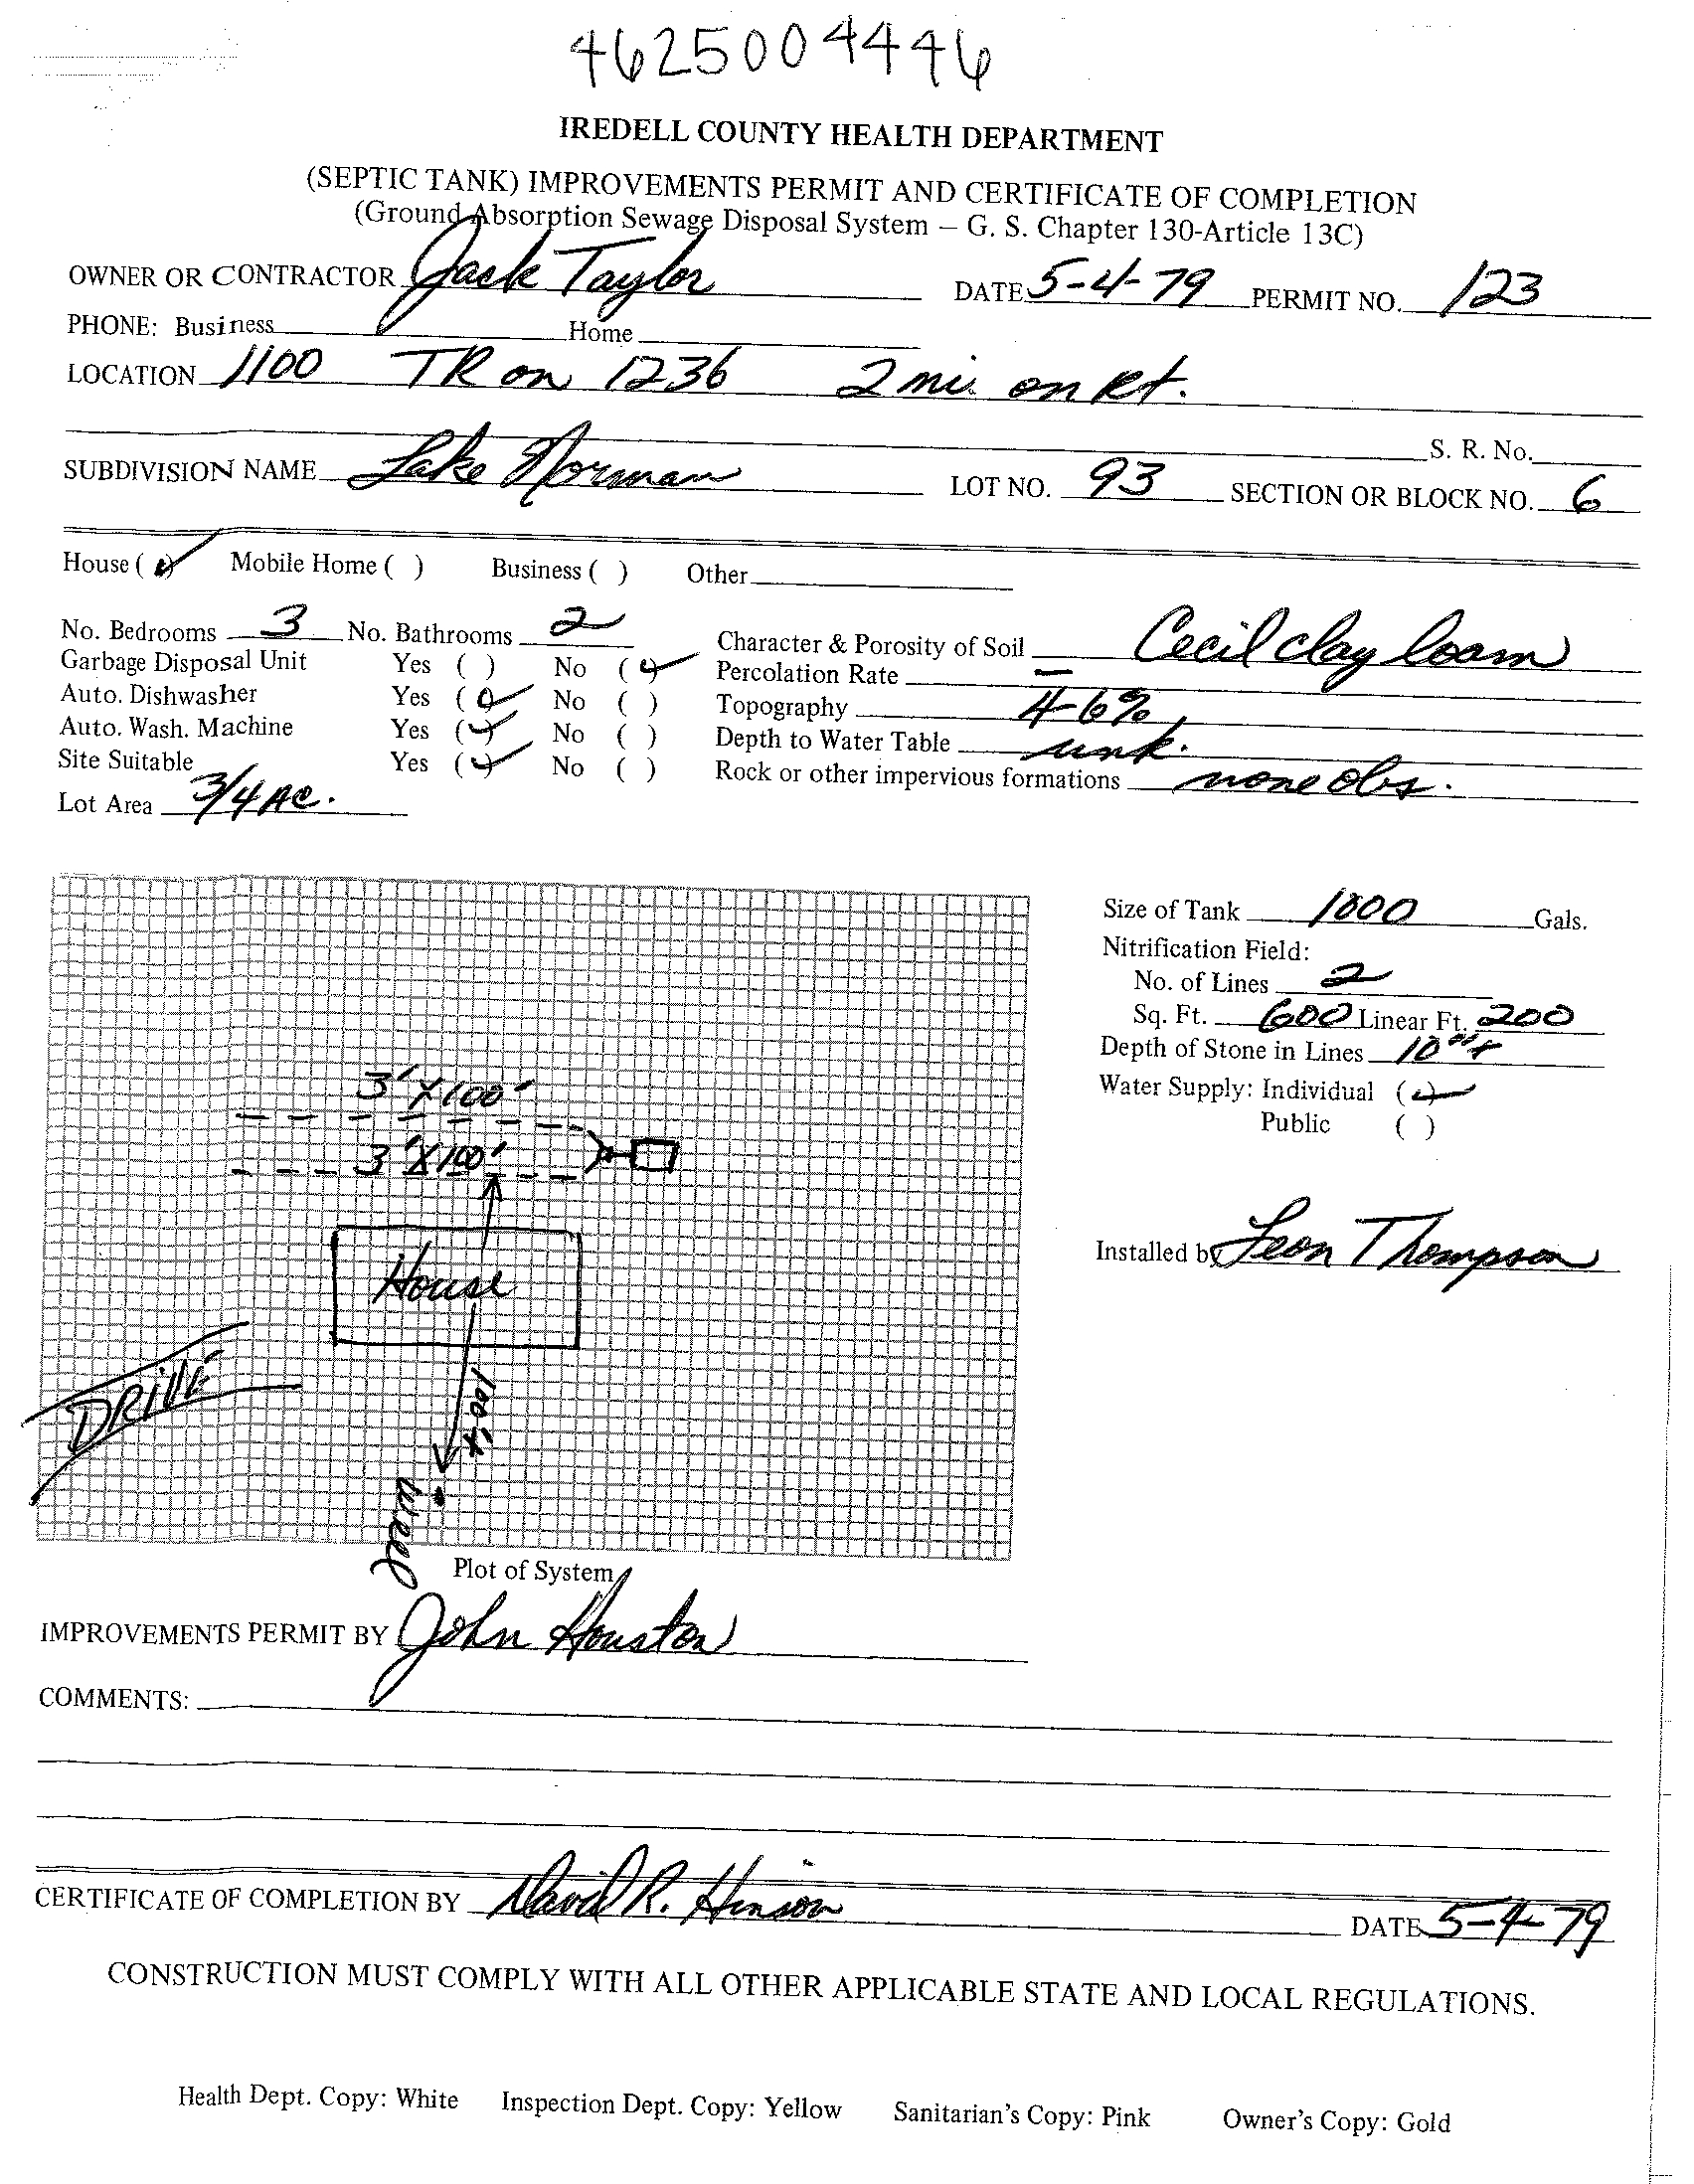 4625004446
IREDELL COUNTY HEALTH DEPARTMENT
(SEPTIC TANK) IMPROVEMENTS PERMIT AND CERTIFICATE OF COMPLETION
(Ground Absorption Sewage Disposal System – G. S. Chapter 130-Article 13C)
OWNER OR CONTRACTOR Jack Taylor DATE 5-4-79 PERMIT NO. 123
PHONE: Business Home
LOCATION 1100 TR on 1236 2 mi. on Rt.
S. R. No.
SUBDIVISION NAME Lake Norman LOT NO. 93 SECTION OR BLOCK NO. 6
House ( ) Mobile Home ( ) Business ( ) Other
No. Bedrooms 3 No. Bathrooms 2 Character & Porosity of Soil Cecil clay loam
Garbage Disposal Unit Yes ( ) No ( ) Percolation Rate —
Auto. Dishwasher Yes ( ) No ( ) Topography 4-6%
Auto. Wash. Machine Yes ( ) No ( ) Depth to Water Table unk.
Site Suitable Yes ( ) No ( ) Rock or other impervious formations none obs.
Lot Area 3/4 AC.
Size of Tank 1000 Gals.
Nitrification Field:
No. of Lines 2
Sq. Ft. 600 Linear Ft. 200
Depth of Stone in Lines 10"
Water Supply: Individual ( )
Public ( )
3' X 100'
3' X 100'
House
Installed by Leon Thompson
DRIVE
100'+
Well
Plot of System
IMPROVEMENTS PERMIT BY John Houston
COMMENTS:
CERTIFICATE OF COMPLETION BY David R. Hinson DATE 5-4-79
CONSTRUCTION MUST COMPLY WITH ALL OTHER APPLICABLE STATE AND LOCAL REGULATIONS.
Health Dept. Copy: White Inspection Dept. Copy: Yellow Sanitarian's Copy: Pink Owner's Copy: Gold